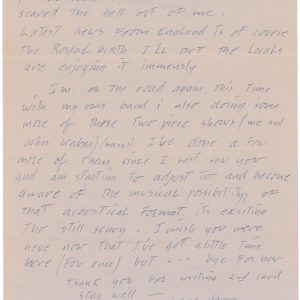 scared the hell out of me.
Latest news from England is of course
the Royal birth I'll bet the locals
are enjoying it immensly.
I'm on the road again, this time
with my own band & also doing some
more of those two piece shows (me and
John Kahn) (bass). I've done a few
more of them since I last saw you
and am starting to adjust to and become
aware of the musical possibilitys of
that acoustical format its exciting
tho still scary. I wish you were
here now that I've got alittle time
here (for once) but ... bye for now
Thank you for writing 2nd card
stay well —